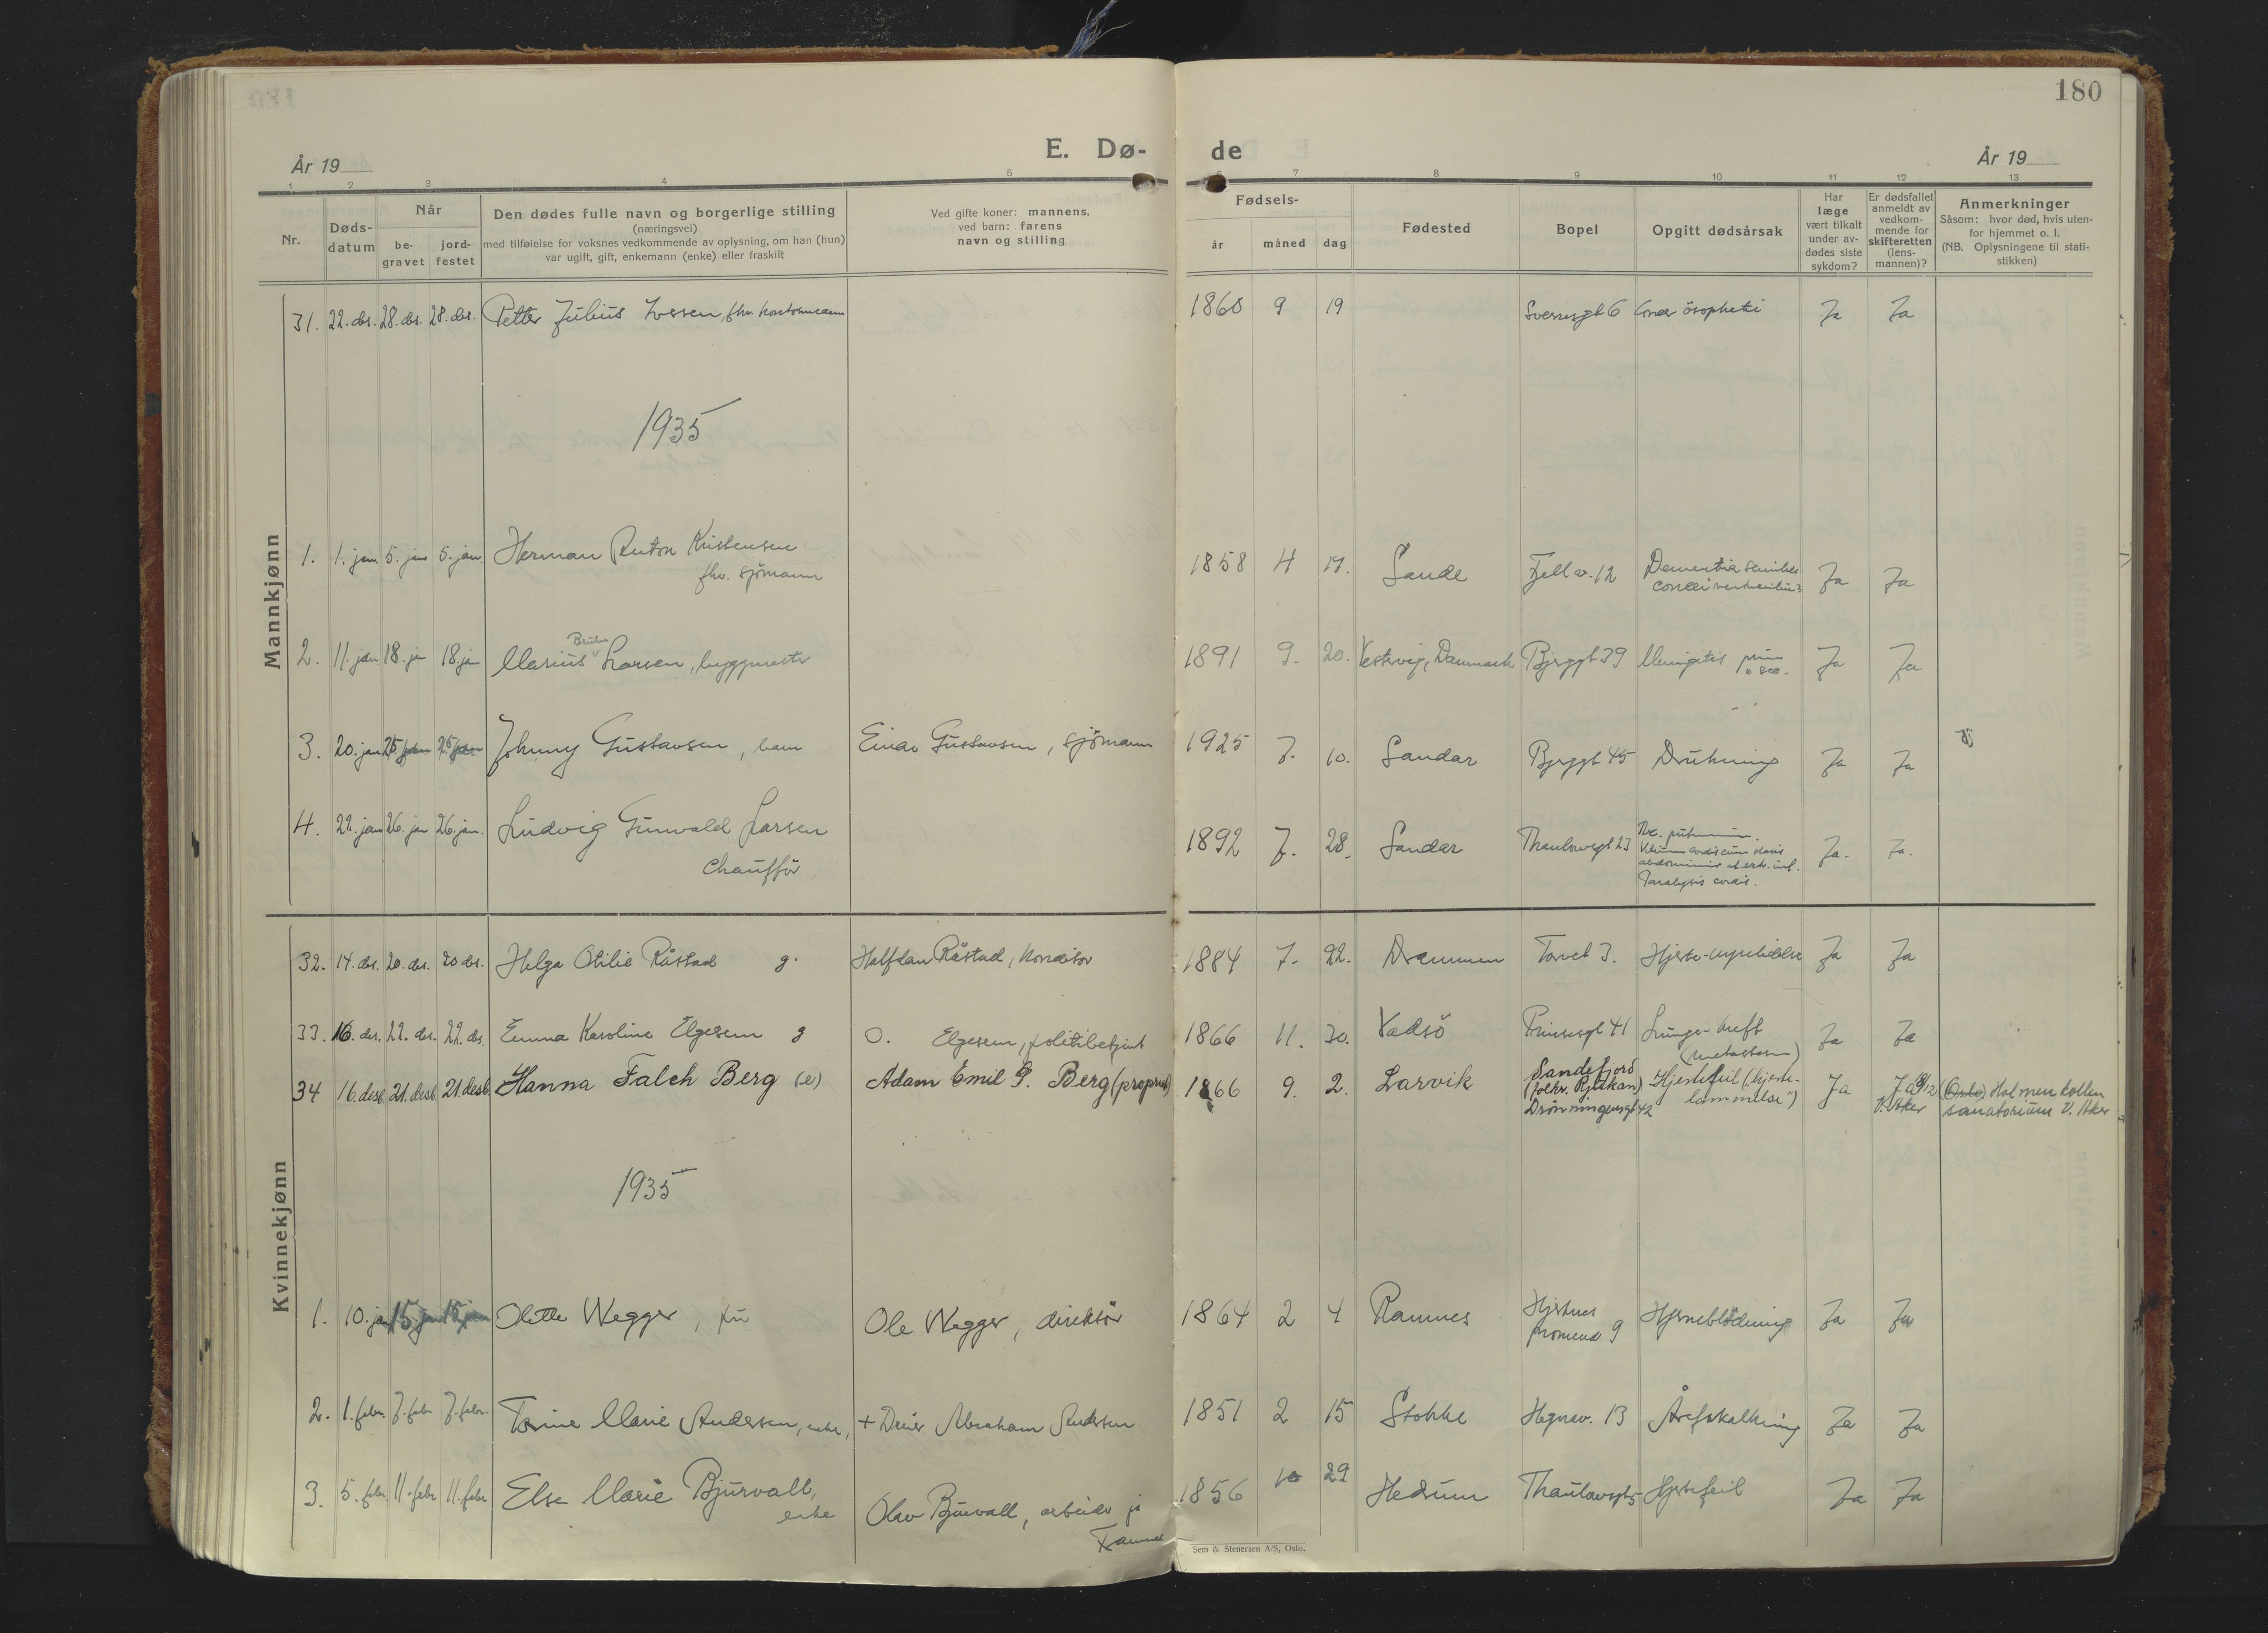 180
E. Dø- de
År 19
År 19
1 2 3 4 5 6 7 8 9 10 11 12 13
Nr.
Døds-
datum
Når
be-
gravet
jord-
festet
Den dødes fulle navn og borgerlige stilling
(næringsvei)
med tilføielse for voksnes vedkommende av oplysning, om han (hun)
var ugift, gift, enkemann (enke) eller fraskilt
Ved gifte koner: mannens,
ved barn: farens
navn og stilling
Fødsels-
år måned dag
Fødested
Bopel
Opgitt dødsårsak
Har
læge
vært tilkalt
under av-
dødes siste
sykdom?
Er dødsfallet
anmeldt av
vedkom-
mende for
skifteretten
(lens-
mannen)?
Anmerkninger
Såsom: hvor død, hvis uten-
for hjemmet o. l.
(NB. Oplysningene til stati-
stikken)
Mannkjønn
31. 22. des. 28. des. 28. des. Petter Julius Iversen, fhv. 1860 9 19 Sverresgt 6 Ja Ja
1935
1. 1. jan. 5. jan 5. jan. Herman Anton Kristensen
fhv. sjömann
1858 4 17. Sande Fjellv. 12 Dementia senilis
Ja Ja
2. 11. jan 18. jan 18. jan Marius Bruhn Larsen, byggmester 1891 9. 20. Vestervig, Danmark Bjerggt 39 Meningitis Ja Ja
3. 20. jan 25 jan 25 jan Johnny Gustavsen, barn Einar Gustavsen, sjömann 1925 7. 10. Sandar Bjerggt 45 Drukning Ja Ja
4. 22. jan 26. jan 26. jan. Ludvig Gunvald Larsen
chaufför
1892 7. 28. Sandar Thaulowsgt 23
Paralysis cordis.
Ja. Ja.
Kvinnekjønn
32. 14. des. 20. des. 20 des. Helga Otilie Råstad g. Halfdan Råstad, konditor 1884 7. 22. Drammen Torvet 3. Hjerte-nyrelidelse Ja Ja
33. 16. des. 22. des. 22. des. Emma Karoline Elgesem g O. Elgesem, politibetjent 1866 11. 30. Vadsö Prinsesgt 41 Lunge-kreft
(metastaser)
Ja Ja
34 16. desb. 21. desb. 21. desb. Hanna Falch Berg (e) Adam Emil G. Berg (propriet) 1866 9. 2. Larvik Sandefjord
(folkr. Rjukan)
Drönningensgt 42
Hjertefeil ("hjerte-
lammelse")
Ja Ja 19/12
V. Aker
(Oslo) Holmenkollen
sanatorium V. Aker
1935
1. 10. jan 15. jan 15. jan Olette Wegger, fru Ole Wegger, direktör 1864 2 4 Ramnes Hjertnes
promenade 9
Hjerneblödning Ja Ja
2. 1. febr. 7. febr 7. febr. Torine Marie Andersen, enke, + Abraham Andersen 1851 2 15 Stokke Hegnav. 13 Åreforkalkning Ja Ja
3. 5. febr. 11. febr 11. febr Else Marie Bjurvall,
enke
Olav Bjurvall, arbeider på
Framnæs
1856 10 29 Hedrum Thaulowsgt 5 Hjertefeil Ja Ja
Sem & Stenersen A/S, Oslo.